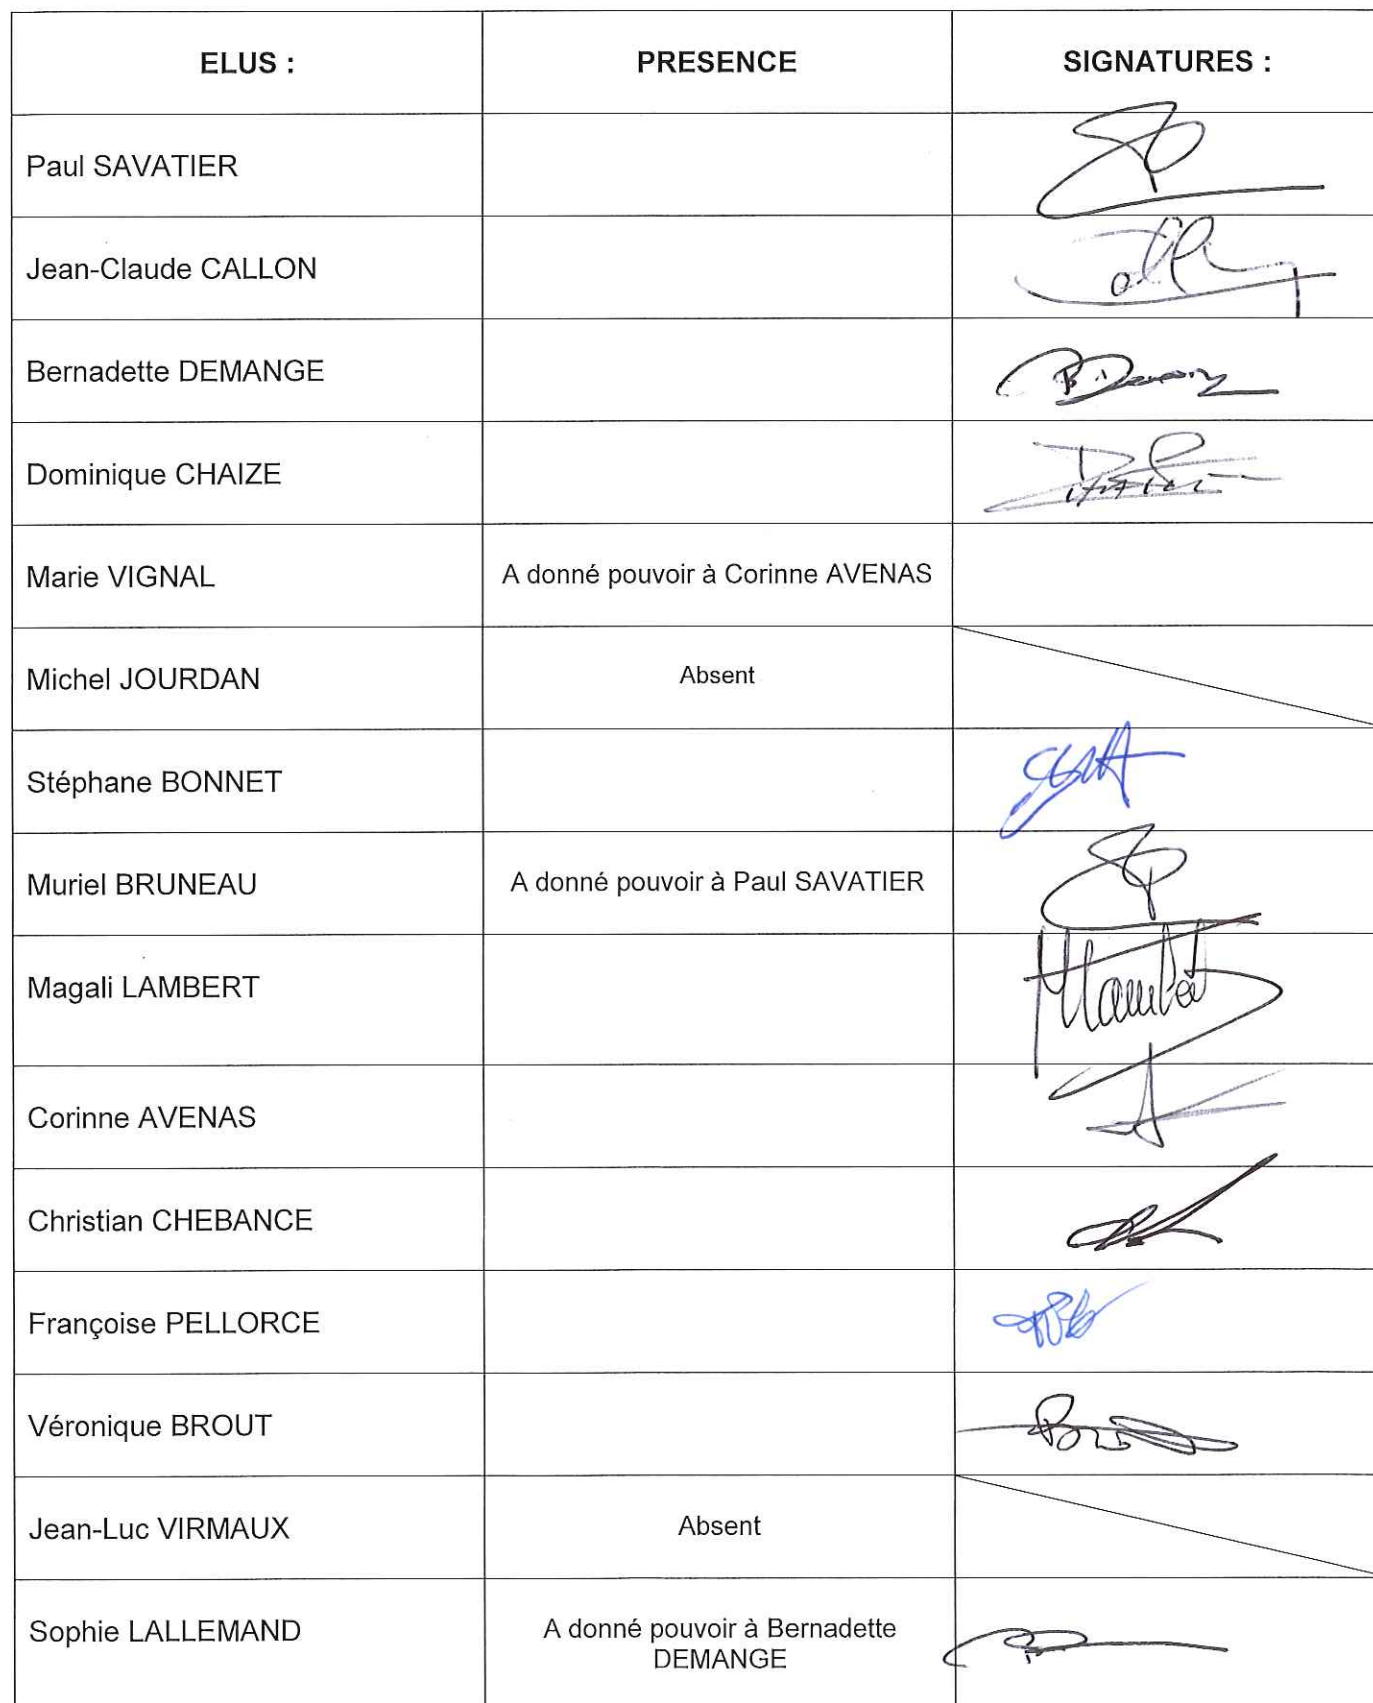 ELUS : PRESENCE SIGNATURES :
Paul SAVATIER
Jean-Claude CALLON
Bernadette DEMANGE
Dominique CHAIZE
Marie VIGNAL A donné pouvoir à Corinne AVENAS
Michel JOURDAN Absent
Stéphane BONNET
Muriel BRUNEAU A donné pouvoir à Paul SAVATIER
Magali LAMBERT
Corinne AVENAS
Christian CHEBANCE
Françoise PELLORCE
Véronique BROUT
Jean-Luc VIRMAUX Absent
Sophie LALLEMAND A donné pouvoir à Bernadette
DEMANGE